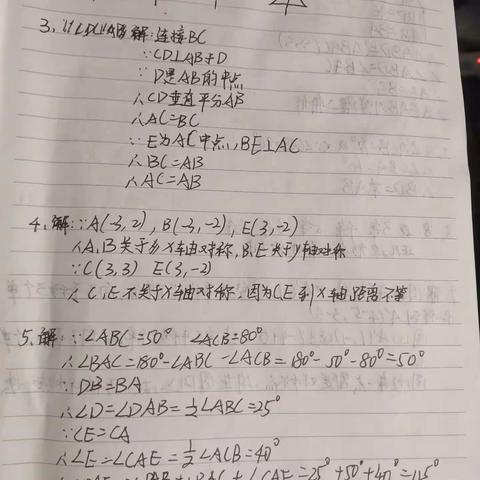 3、解:连接BC
∵CD⊥AB于D
∵D是AB的中点
∴CD垂直平分AB
∴AC=BC
∵E为AC中点,BE⊥AC
∴BC=AB
∴AC=AB
4、解:∵A(-3,2),B(-3,-2),E(3,-2)
∴A,B关于x轴对称,B,E关于y轴对称
∵C(3,3) E(3,-2)
∴C,E不关于x轴对称,因为C,E到x轴距离不等
5、解:∵∠ABC=50° ∠ACB=80°
∴∠BAC=180°-∠ABC-∠ACB=180°-50°-80°=50°
∵DB=BA
∴∠D=∠DAB=½∠ABC=25°
∵CE=CA
∴∠E=∠CAE=½∠ACB=40°
∠CAE=25°+50°+40°=115°